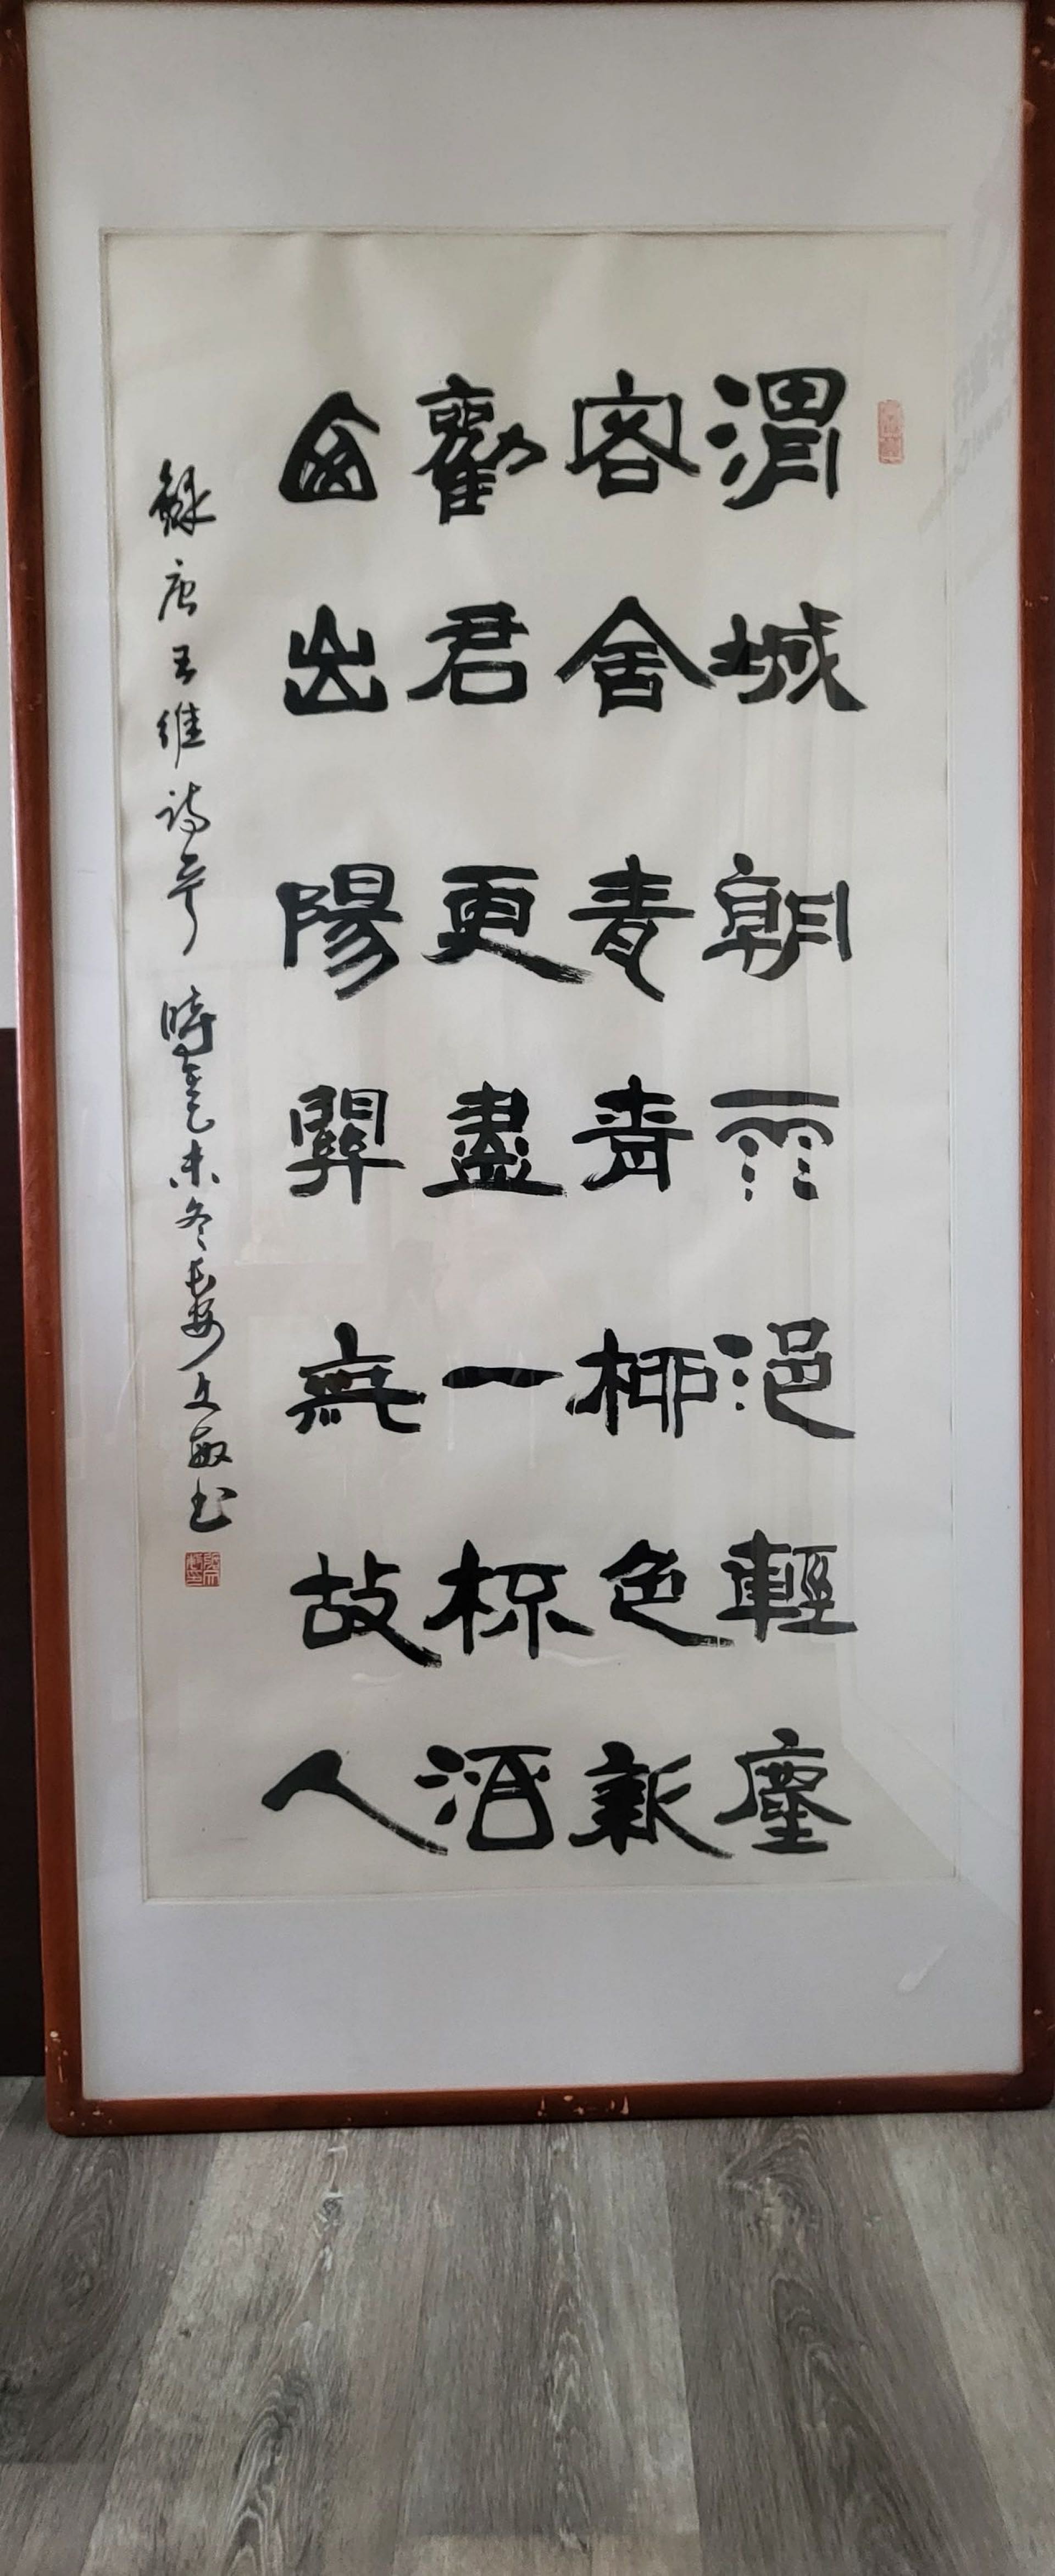 渭城朝雨浥輕塵
客舍青青柳色新
勸君更盡一杯酒
西出陽關無故人
錄唐王維詩一首 時在乙未冬長安文敏書